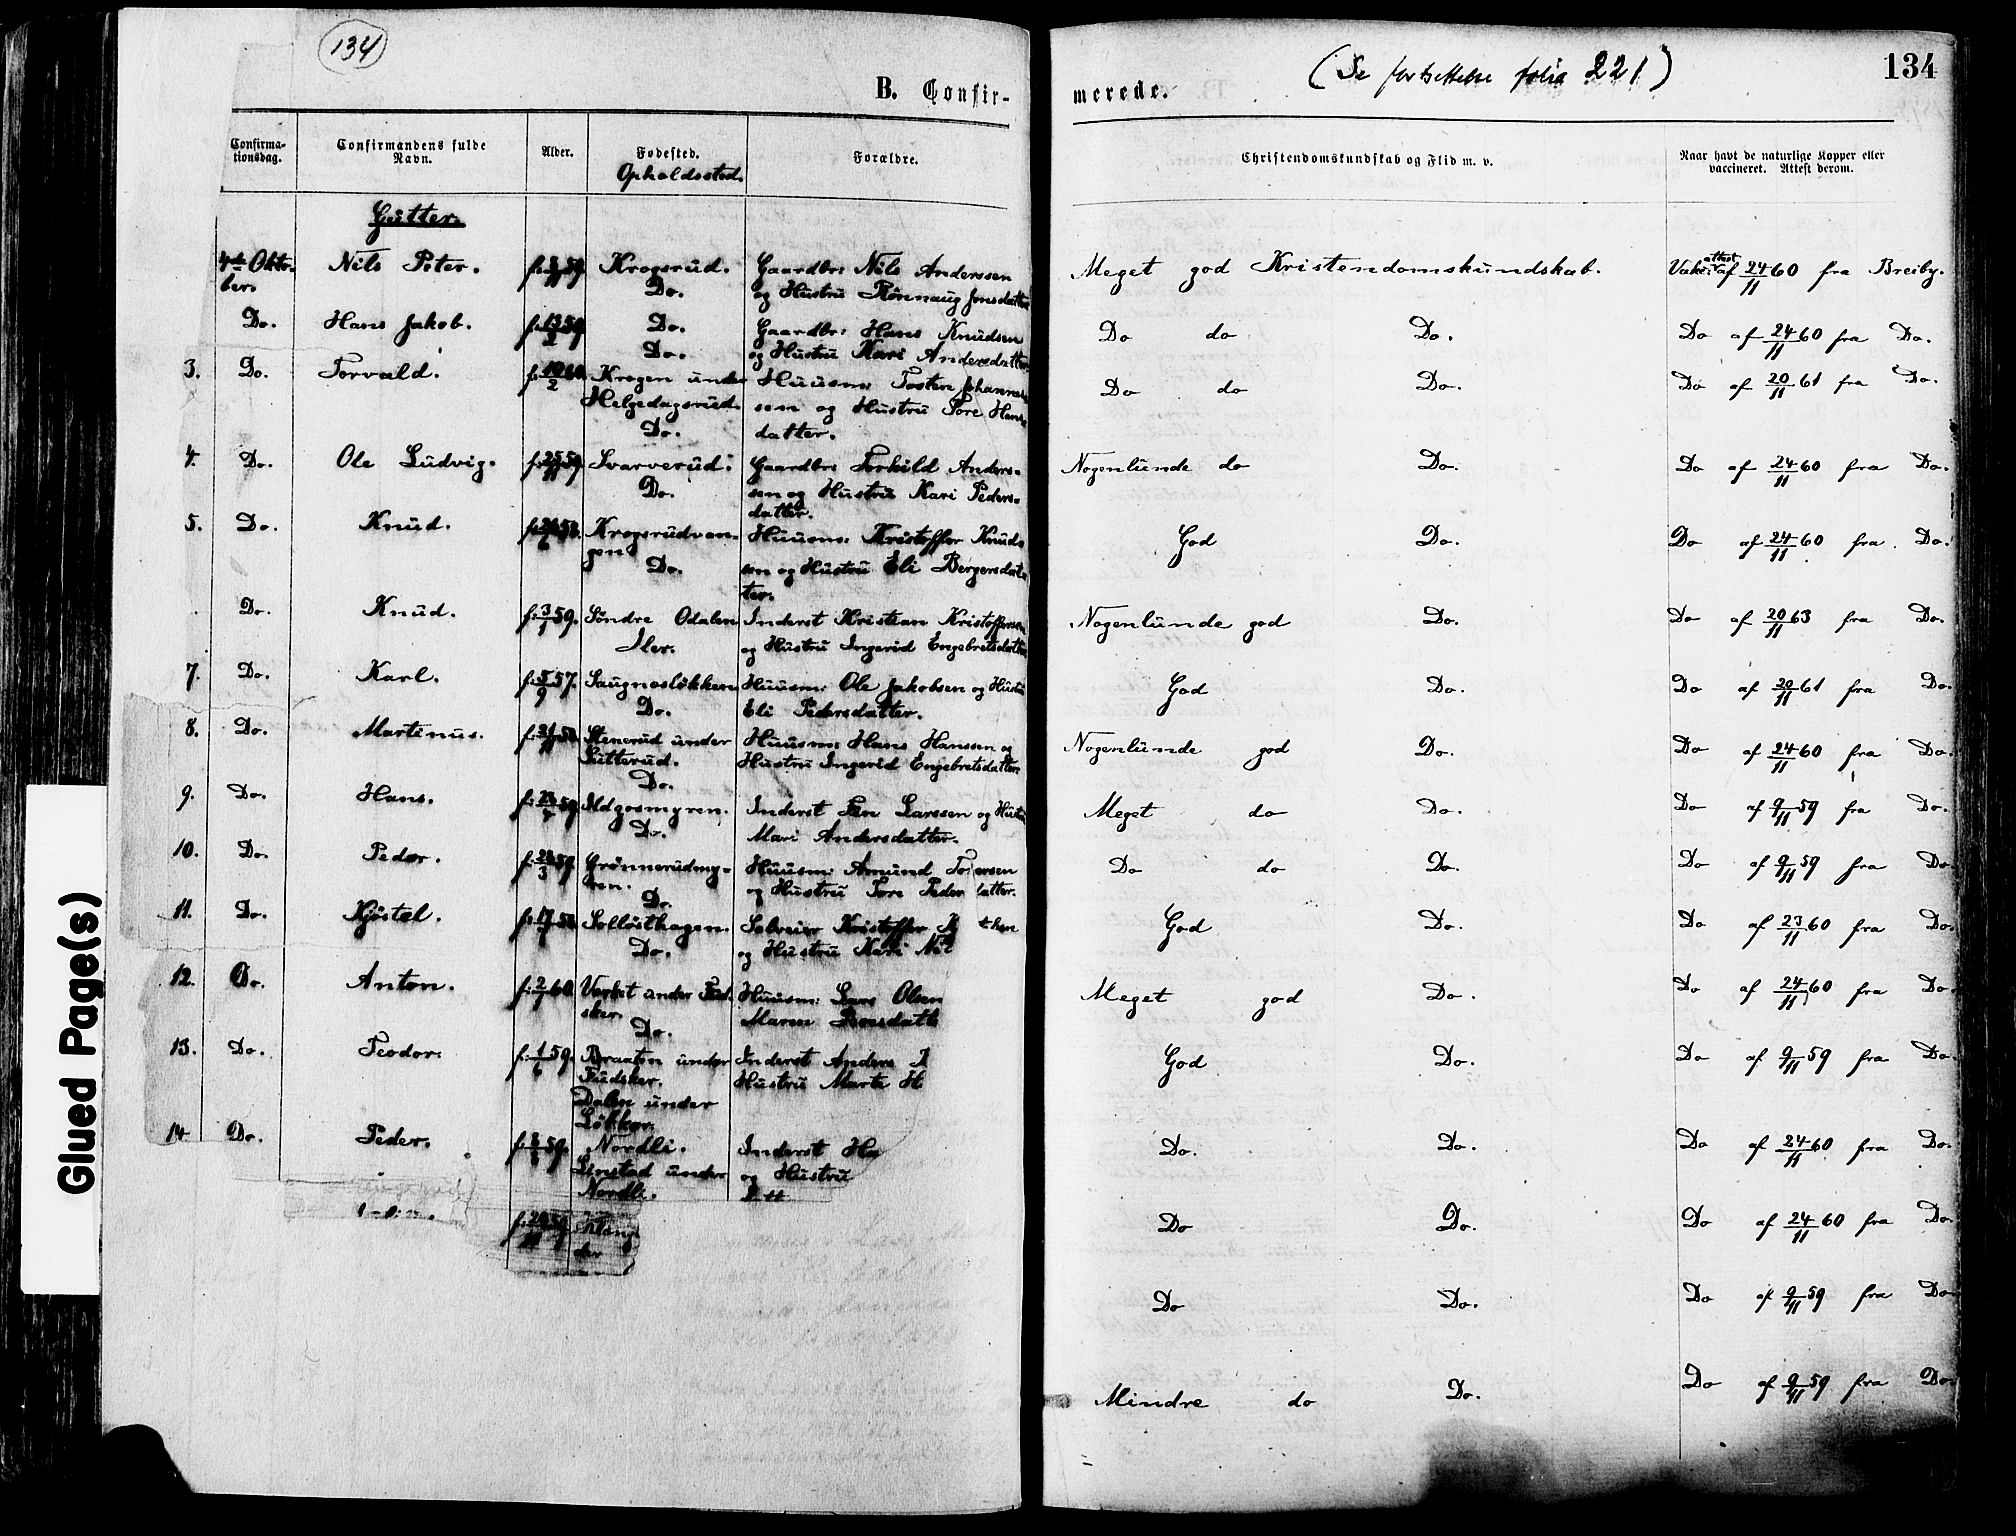 134
B. Confir-
Confirma-
tionsdag.
Confirmandens fulde
Navn.
Alder.
Fødested.
Opholdssted.
Forældre.
Gutter.
4de Okto-
ber.
Nils Peter.
Krogsrud.
Do.
Gaardbr: Nils Anderssen
og Hustru Rönnaug Jonsdatter
Do.
Hans Jakob.
Do.
Do.
Gaardbr: Hans Knudsen
og Hustru Kari Andersdatter
3.
Do.
Torvald.
Krogen under
Helgedagsrud.
Do.
Huusm: Tosten Johannes-
sen og Hustru Tore Hans-
datter.
4.
Do.
Ole Ludvig.
Svarverud.
Do.
Gaardbr: Torkild Anders-
sen og Hustru Kari Peders-
datter.
5.
Do.
Knud.
Krogsrudvan-
gen
Do.
Huusm: Kristoffer Knuds
sen og Hustru Eli Bergersdat-
ter.
Do.
Knud.
f. 3/1 59.
Söndre Odalen
Iler.
Inderst Kristian Kristoffersen
og Hustru Ingerid Engebretsdatter
7.
Do.
Karl.
f. 5/9 57.
Saugneslökken
Do.
Huusm: Ole Jakobsen og Hustru
Eli Pedersdatter.
8.
Do.
Martinus.
Stenerud under
Sutterud.
Do.
Huusm: Hans Hansen og
Hustru Ingerid Engebretsdatter
9.
Do.
Hans.
Do.
Inderst Larssen og Hustru
Mari Andersdatter.
10.
Do.
Peder.
Grönnerudmy-
ren.
Do.
Huusm: Amund
og Hustru Tore
11.
Do.
Kjöstel.
Sollösthagen.
Do.
Kristoffer
og Hustru Kari
12.
Do.
Anton.
f. 2/1 60
under
Do.
Huusm: Lars Olsen
Maren
13.
Do.
Teodor.
f. 1/6 59.
Braaten under
Fudsker.
Dalen under
Lökker.
Inderst Anders
Hustru Marte H
14
Do.
Peder.
Nordli.
Linstad under
Nordli.
Inderst Ha
og Hustru
merede.
(Se fortsettelse folio 221)
134
Christendomskundskab og Flid m. v.
Naar havt de naturlige Kopper eller
vaccineret. Attest derom.
Meget god Kristendomskundskab.
attest
Vak: af 24/11 60 fra Breiby.
Do do Do.
Do af 24/11 60 fra Do.
Do do Do.
Do af 20/11 61 fra Do.
Nogenlunde do Do.
Do af 24/11 60 fra Do.
God Do.
Do af 24/11 60 fra Do.
Nogenlunde god Do.
Do af 20/11 63 fra Do.
God Do.
Do af 20/11 61 fra Do.
Nogenlunde god Do.
Do af 24/11 60 fra Do.
Meget do Do.
Do af 9/11 59 fra Do.
Do do Do.
Do af 9/11 59 fra Do
God Do.
Do af 23/11 60 fra Do.
Meget god Do.
Do af 24/11 60 fra Do.
God Do.
Do af 9/11 59 fra Do.
Do. Do.
Do af 24/11 60 fra Do.
Do Do.
Do af 24/11 60 fra Do.
Do Do.
Do af 9/11 59 fra Do
Mindre do Do.
Do af 9/11 59 fra Do.
Glued Page(s)